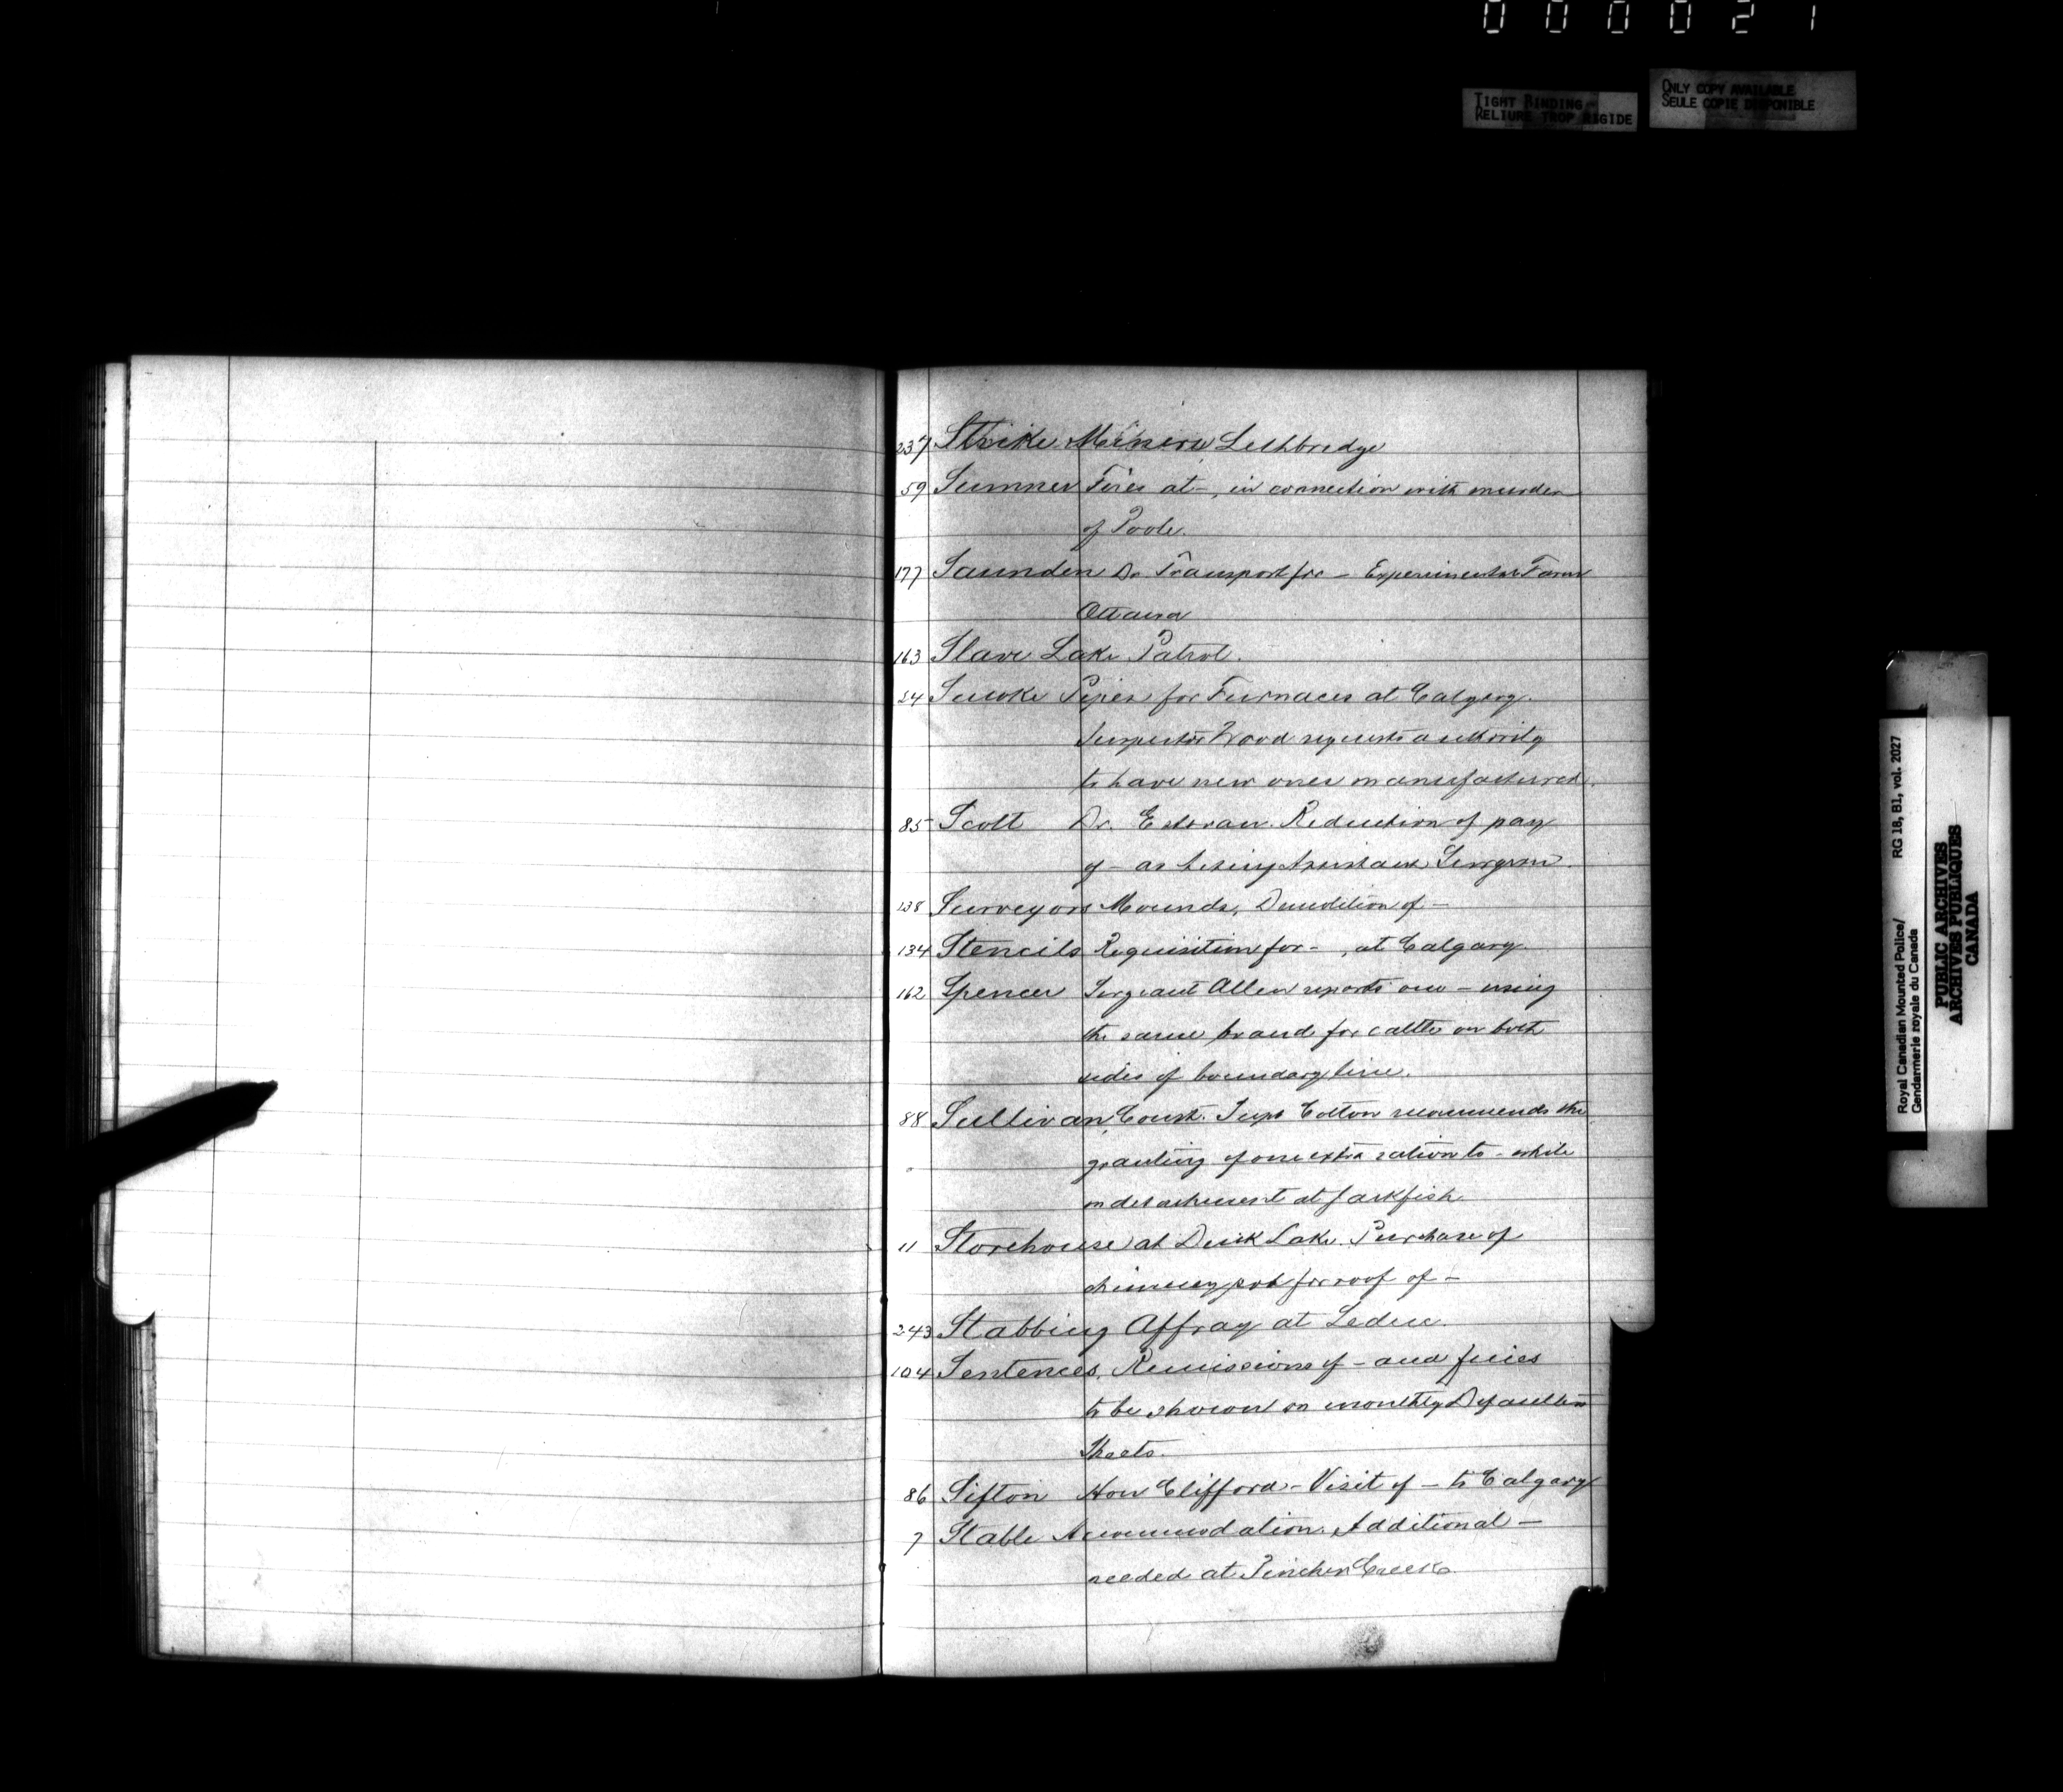 000021
TIGHT BINDING
RELIURE TROP RIGIDE
ONLY COPY AVAILABLE
SEULE COPIE DISPONIBLE
237 Strike Miners Lethbridge
59 Sumner Fires at -, in connection with murder
of Poole.
177 Saunders Dr Transport for - Experimental Farm
Ottawa
163 Slave Lake Patrol.
24 Smoke Pipes for Furnaces at Calgary.
Inspector Wood requests authority
to have new ones manufactured.
85 Scott Dr. Estevan. Reduction of pay
of - as Acting Assistant Surgeon.
138 Surveyors Mounds, of -
134 Stencils Requisition for -, at Calgary.
162 Spencer Sergeant Allen reports one - using
the same brand for cattle on both
sides of boundary line.
88 Sullivan Const. Supt Cotton recommends the
granting of one extra ration to - while
on detachment at Jackfish.
11 Storehouse at Duck Lake. Purchase of
chimney pot for roof of -
243 Stabbing Affray at Leduc.
104 Sentences, Remissions of - and fines
to be shown on monthly Defaulters
Sheets.
86 Sifton Hon Clifford - Visit of - to Calgary
7 Stable Accommodation. Additional -
needed at Pincher Creek.
Royal Canadian Mounted Police/ RG 18, B1, vol. 2027
Gendarmerie royale du Canada
PUBLIC ARCHIVES
ARCHIVES PUBLIQUES
CANADA